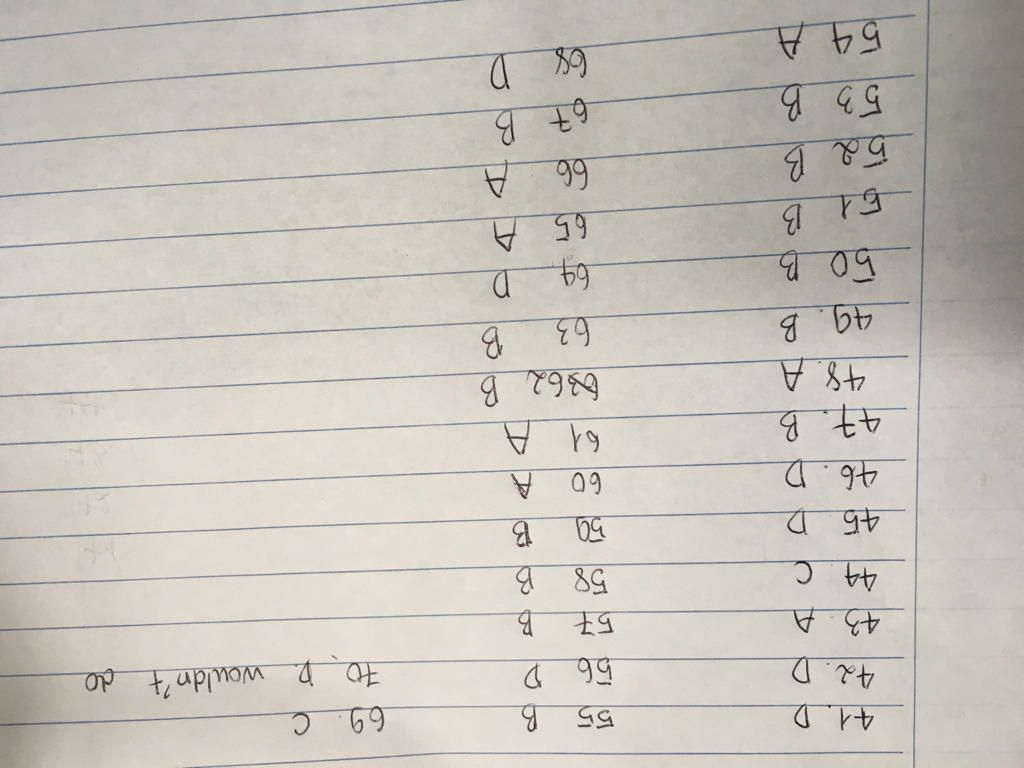 41. D 55 B 69. C
42. D 56 D 70. D wouldn't do
43. A 57 B
44 C 58 B
45 D 59 B
46. D 60 A
47. B 61 A
48. A 62 B
49. B 63 B
50 B 64 D
51 B 65 A
52 B 66 A
53 B 67 B
54 A 68 D